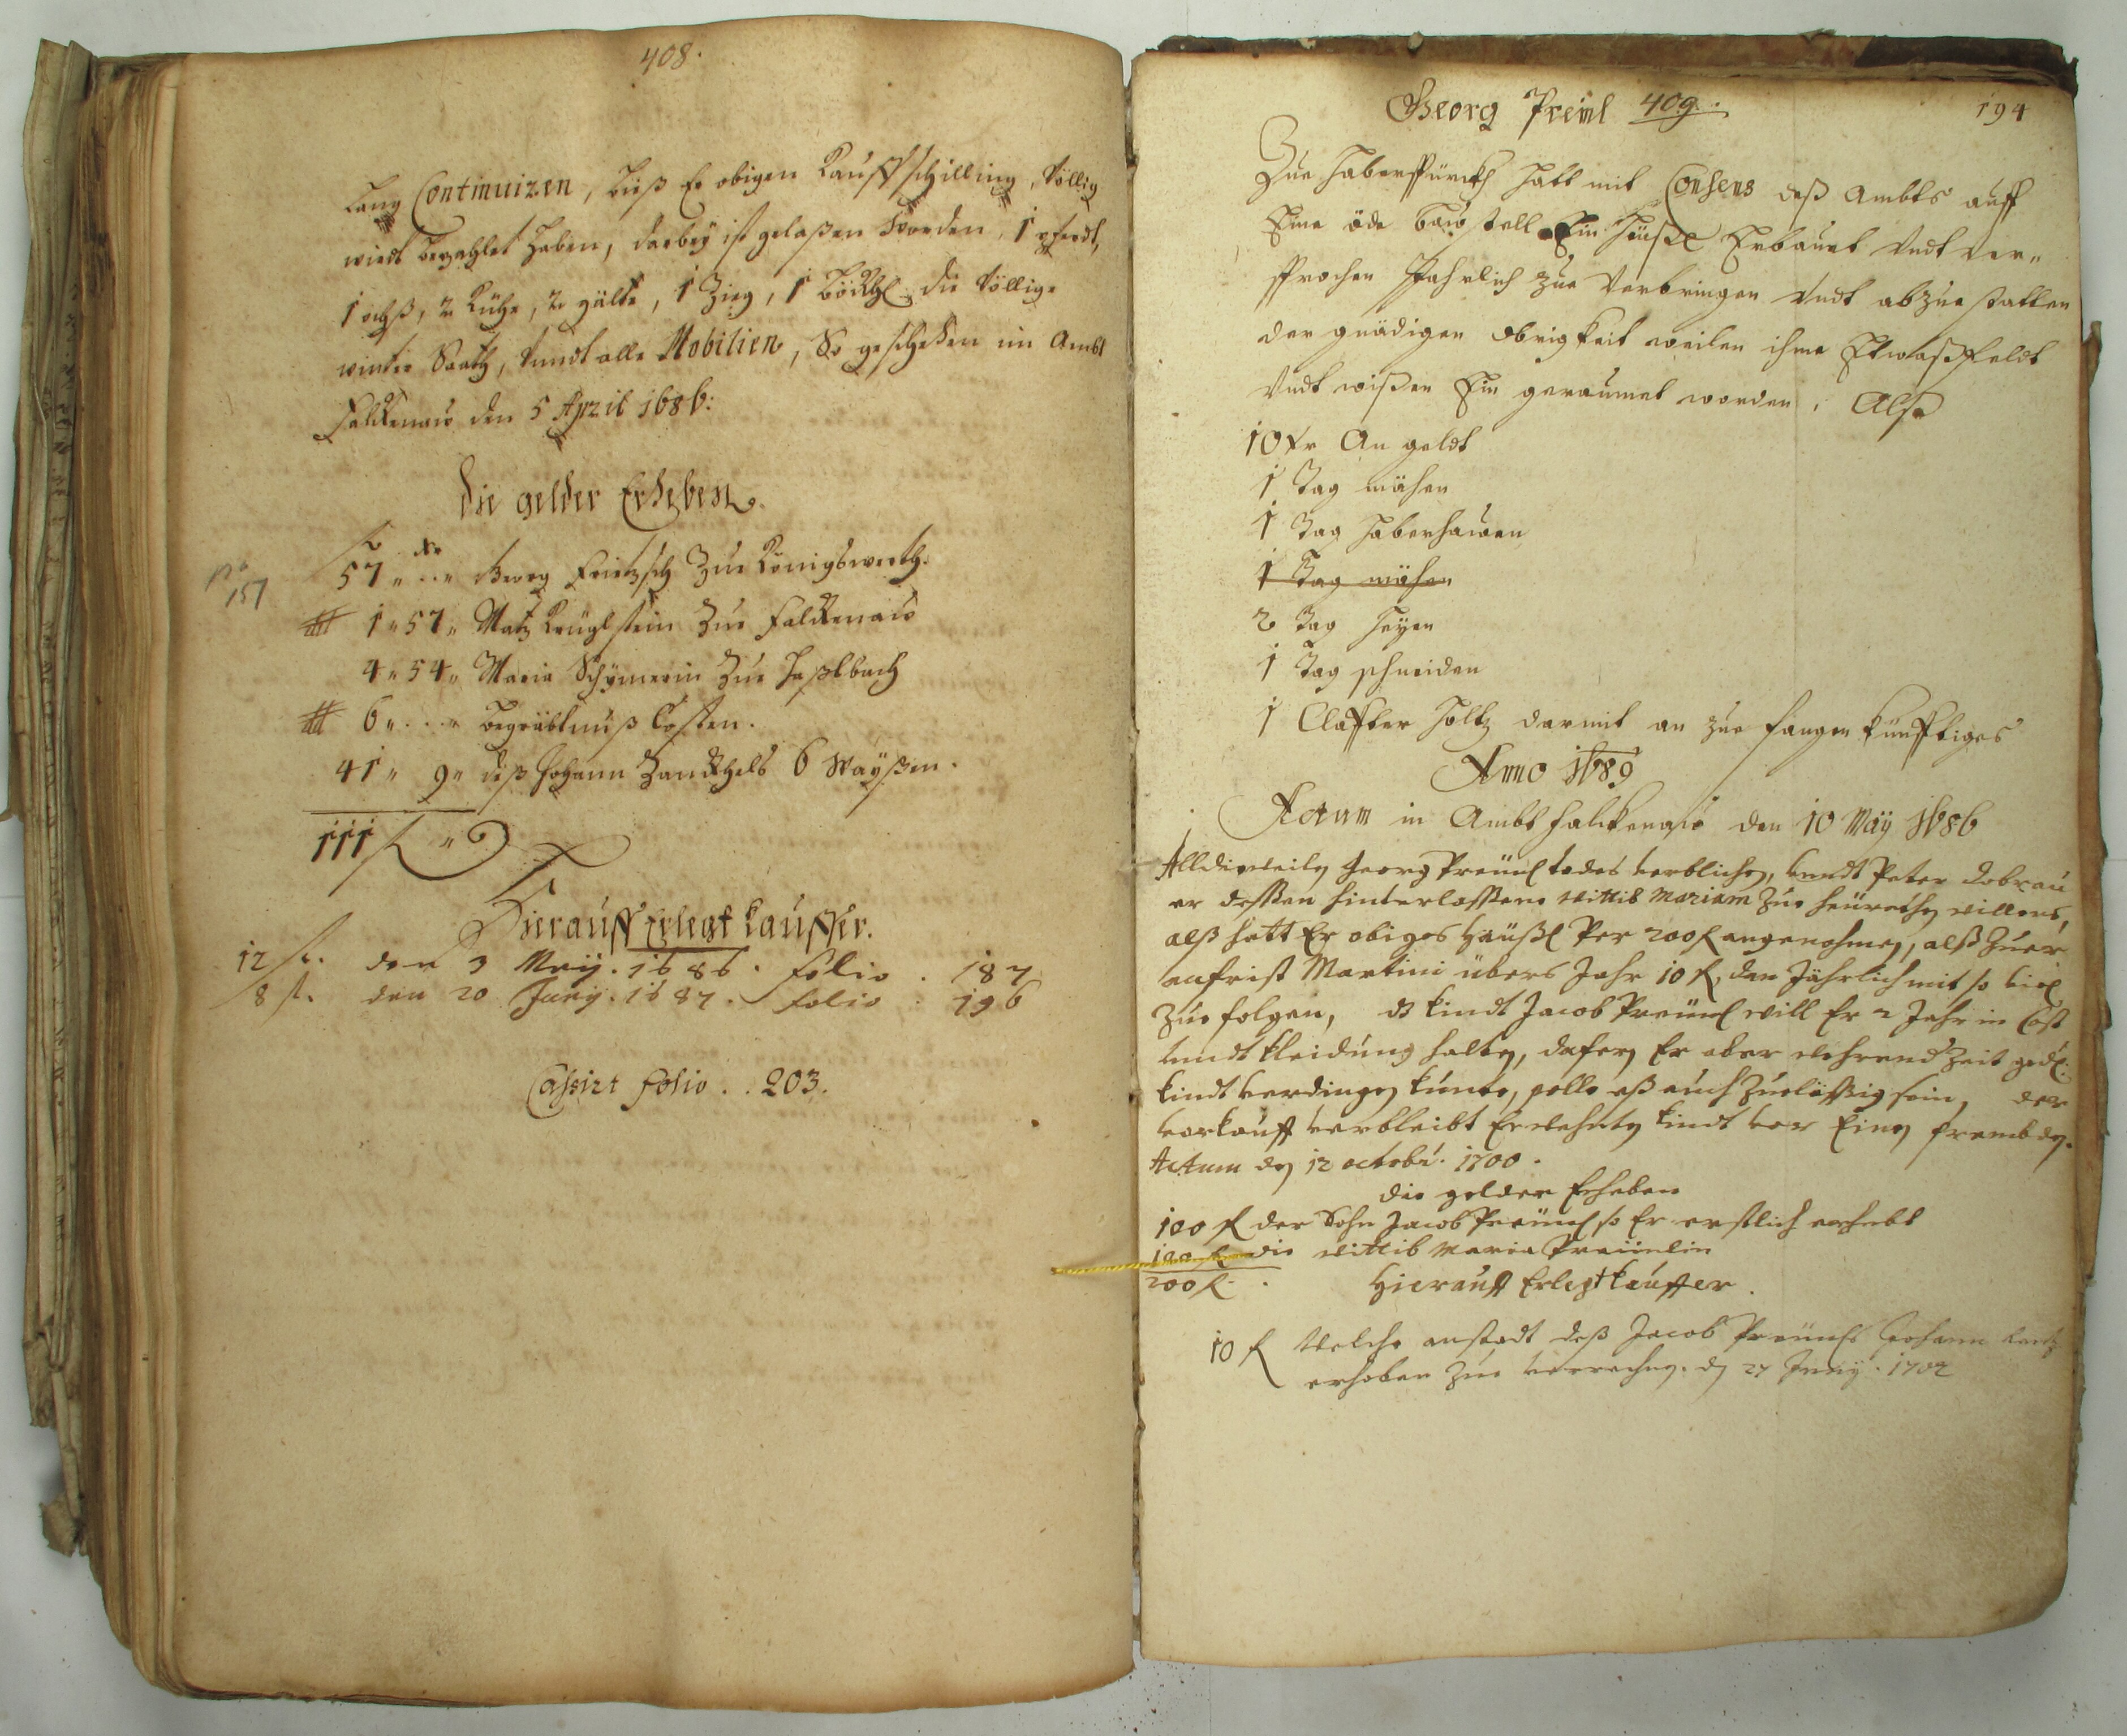 408.
Lang Continuizen, bieß Er obigen Kauffschilling, völlig
wirdt bezahlet haben, darbey ist gelaßen worden, 1 pferdt,
1 ochß, 2 Kühe, 2 gälte, 1 Zieg, 1 Böckhl die völlige
winter Saath, sundt alle Mobilien, So geschehen im Ambt
Falckenaw den 5 April 1686:
Die gelder Erheben.
No 157
fl xr
57 " .. " Georg Fritzsch Zue Königswerth.
1 " 57 " Matz Krüglstein Zue Falckenaw
4 " 54 " Maria Schymerin Zue Haßlbach
6 " ... " Begräbtnuß Costen.
41 " 9 " deß Johann Zanckhels 6 Waÿßen.
111 fl "
Hierauff Erlegt Kauffer.
12 fl. den 3 Maÿ. 1686. folio . 187
8 fl. den 20 Junÿ. 1687. folio . 196
Cassirt folio . . 203.
Georg Preinl 409. 194
Zue Haberspürckh hatt mit Consens deß Ambts auff
Eine öde bawstell Ein Heüßl Erbauet Undt ver„
sprochen Jahrlich zue Verbringen Undt abzuestatten
der gnädigen obrigkeit weilen ihme Etwaß feldt
Undt wißen Ein geraumet worden, Alß
10 xr An geldt
1 Tag mähen
1 Tag haberhawen
1 Tag mähen
2 Tag heyen
1 Tag schneiden
1 Claffter holtz darmit an zue fangen künfftiges
Anno 1689
Actum in Ambt falckenaw den 10 Maÿ 1686
Alldieweiln Georg Preünl todes verblichen, undt Peter Dobrau
er dessen hinterlassene Wittib Mariam zue heürathen willens,
alß hatt Er obiges Häüßl Per 200 fl angenohmen, alß Zuer
anfrist Martini übers Jahr 10 fl, dan Jährlich mit so viel
zue folgen, ds kindt Jacob Preünl will Er 2 Jahr in Cost
undt kleidung halten, dafern Er aber wehrend Zeit gedl.
kindt verdingen kunte, solle eß auch Zueläßig sein, der
vorkauff verbleibt Erwehnten kindt vor Einen frembden.
Actum den 12 octobr. 1700.
die gelder Erheben
100 fl der Sohn Jacob Preünl so Er erstlich erhebt
100 fl die Wittib Maria Preiinlin
200 fl.
Hierauff Erlegt Kauffer.
10 fl Welche anstadt deß Jacob Preünls Johann
erhoben zue verrechnen. den 27 Junÿ. 1702